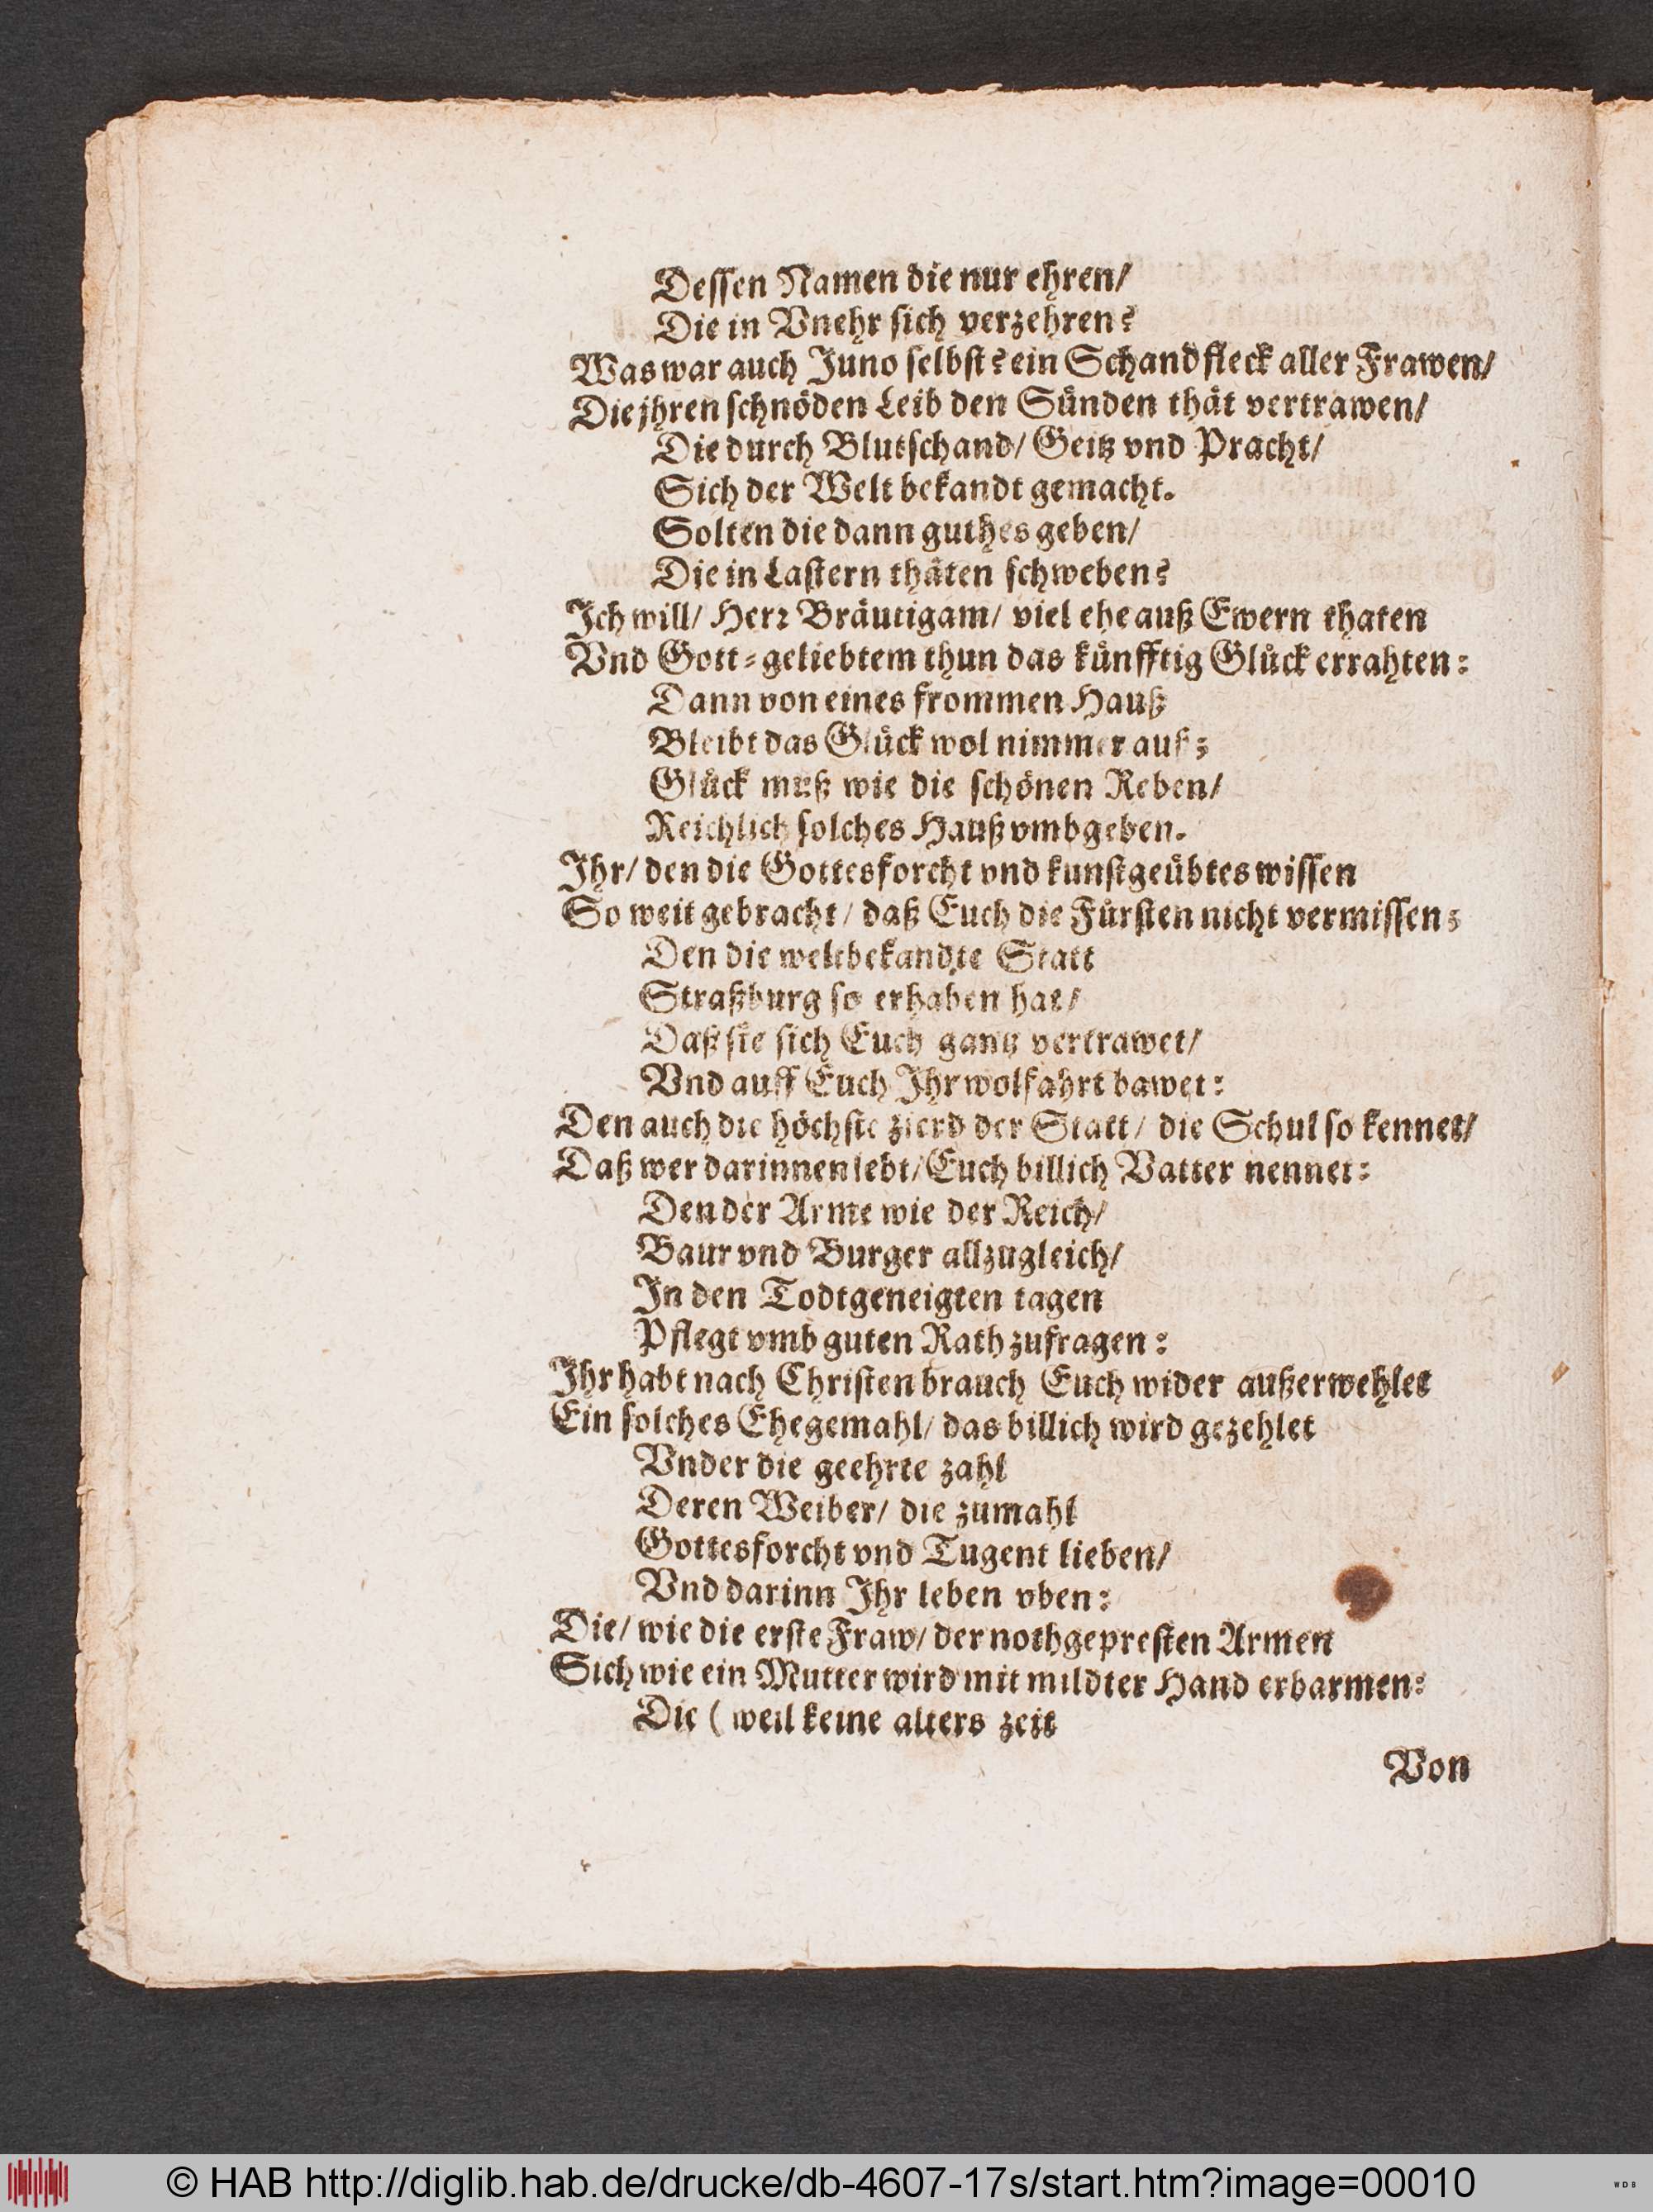 Dessen Namen die nur ehren/
Die in Vnehr sich verzehren?
Was war auch Juno selbst? ein Schandfleck aller Frawen/
Die jhren schnöden Leib den Sünden thät vertrawen/
Die durch Blutschand/ Geitz vnd Pracht/
Sich der Welt bekandt gemacht.
Solten die dann guthes geben/
Die in Lastern thäten schweben?
Ich will/ Herr Bräutigam/ viel ehe auß Ewern thaten
Vnd Gott-geliebtem thun das künfftig Glück errahten:
Dann von eines frommen Hauß
Bleibt das Glück wol nimmer auß;
Glück muß wie die schönen Reben/
Reichlich solches Hauß vmbgeben.
Ihr/ den die Gottesforcht vnd kunstgeübtes wissen
So weit gebracht/ daß Euch die Fürsten nicht vermissen;
Den die weltbekandte Statt
Straßburg so erhaben hat/
Daß sie sich Euch gantz vertrawet/
Vnd auff Euch Ihr wolfahrt bawet:
Den auch die höchste zierd der Statt/ die Schul so kennet/
Daß wer darinnen lebt/ Euch billich Vatter nennet:
Den der Arme wie der Reich/
Baur vnd Burger allzugleich/
In den Todtgeneigten tagen
Pflegt vmb guten Rath zufragen:
Ihr habt nach Christen brauch Euch wider außerwehlet
Ein solches Ehegemahl/ das billich wird gezehlet
Vnder die geehrte zahl
Deren Weiber/ die zumahl
Gottesforcht vnd Tugent lieben/
Vnd darinn Ihr leben vben:
Die/ wie die erste Fraw/ der nothgepresten Armen
Sich wie ein Mutter wird mit mildter Hand erbarmen:
Die ( weil keine alters zeit
Von
© HAB http://diglib.hab.de/drucke/db-4607-17s/start.htm?image=00010
WDB